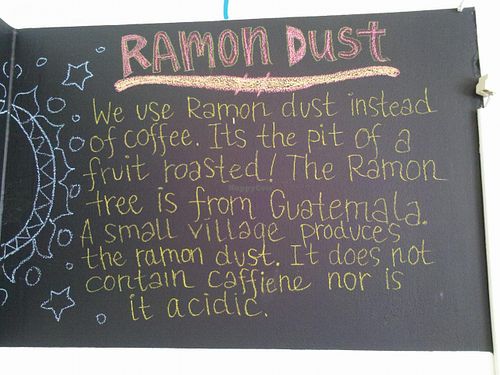 RAMON DUST
We use Ramon dust instead
of coffee. It's the pit of a
fruit roasted! The Ramon
tree is from Guatemala.
A small village produces
the ramon dust. It does not
contain caffiene nor is
it acidic.